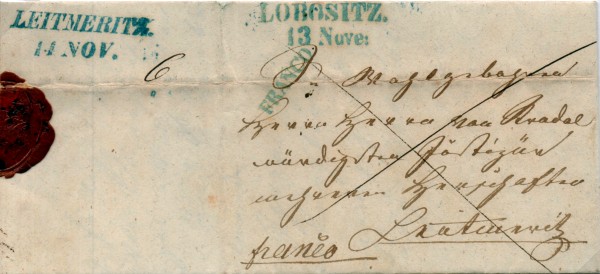 LEITMERITZ.
14 NOV.
LOBOSITZ.
13 Nove:
FRANCO
6
Wohlgebohren
Herrn Herrn von
würdigsten
mehreren Herschaften
franco Leitmeritz